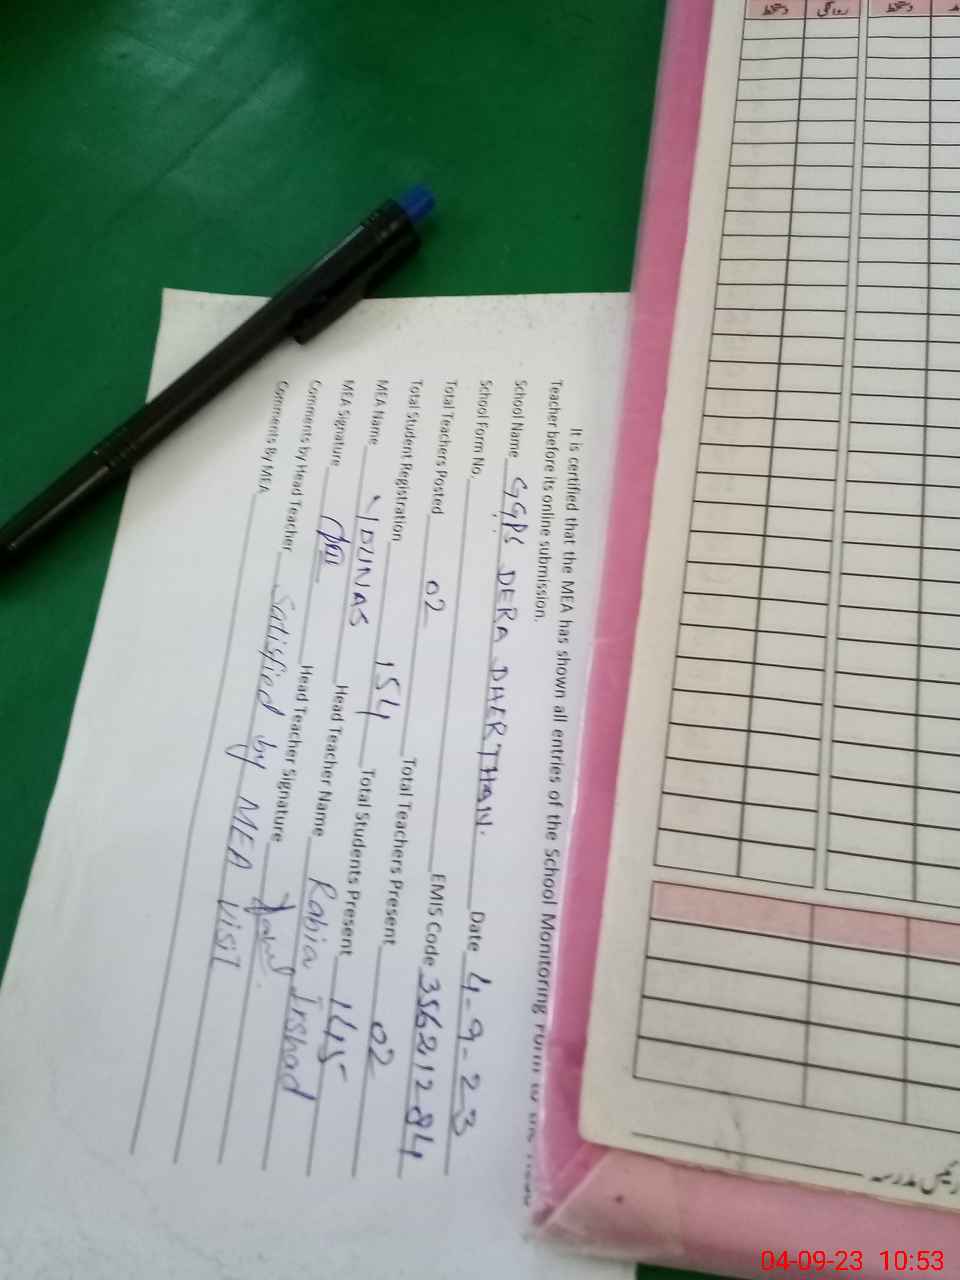 It is certified that the MEA has shown all entries of the School Monitoring Form to the Head
Teacher before its online submission.
School Name GGPS DERA DHERTHAN. Date 4-9-23
School Form No. EMIS Code 35621284
Total Teachers Posted 02 Total Teachers Present 02
Total Student Registration 154 Total Students Present 145
MEA Name YOUNAS Head Teacher Name Rabia Irshad
MEA Signature Head Teacher Signature
Comments by Head Teacher Satisfied by MEA visit
Comments By MEA
دستخط روانگی دستخط
رئیس مدرسہ
04-09-23 10:53